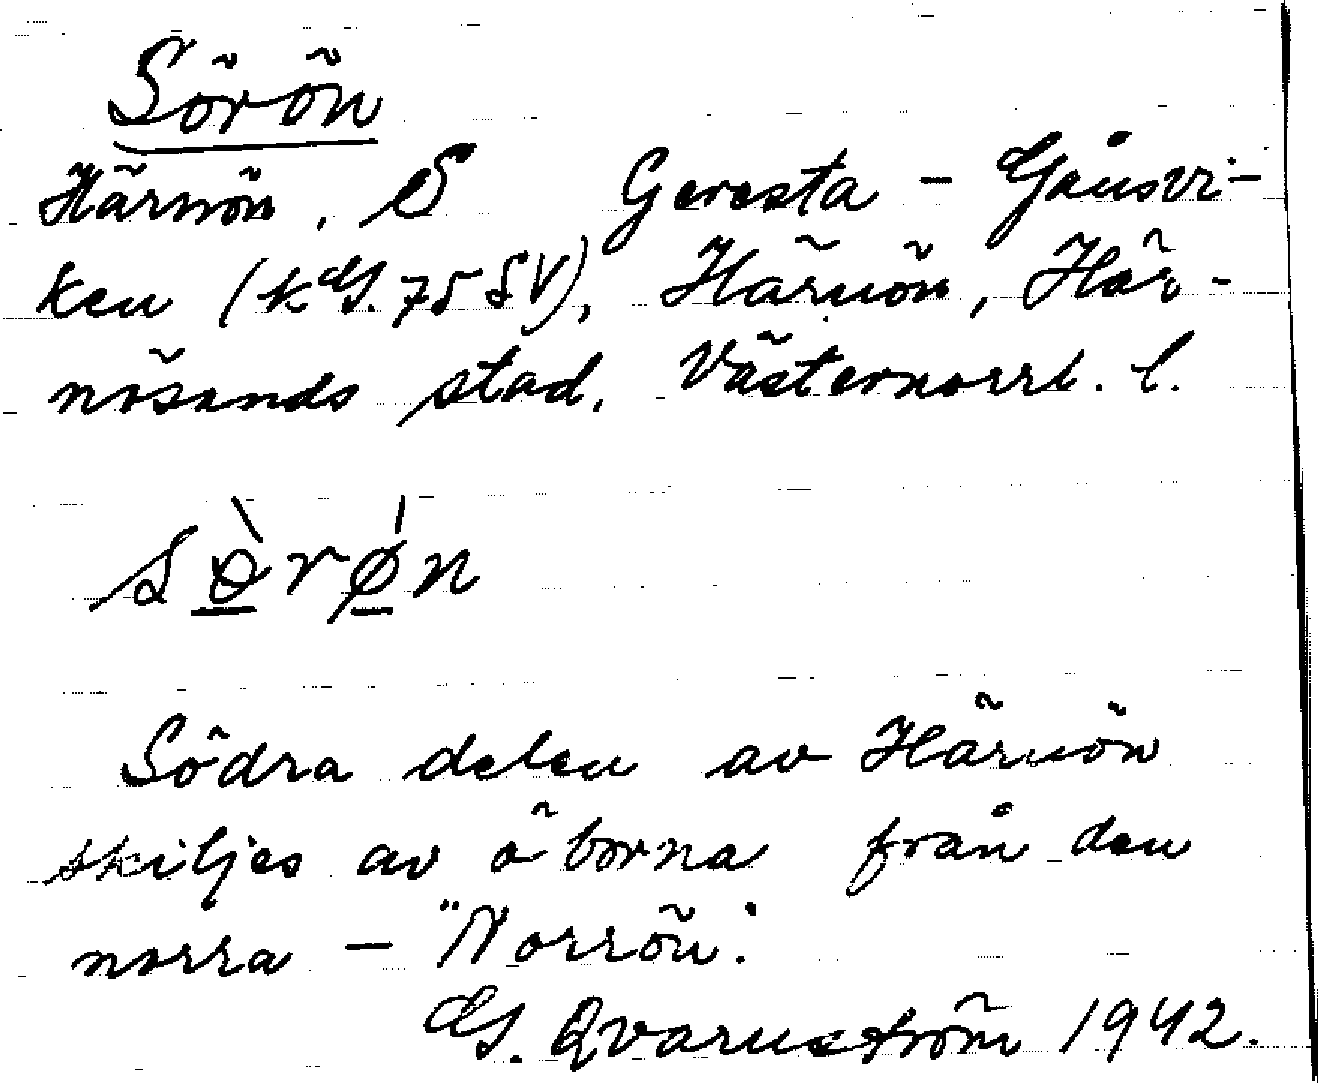 Sörön
Härnön, S Geresta - Gånsvi-
ken (kG. 75 SV), Härnön, Här-
nösands stad, Västernorrl. l.
sø̀rǿn
Södra delen av Härnön
skiljes av öborna från den
norra — "Norrön".
G. Qvarnström 1942.